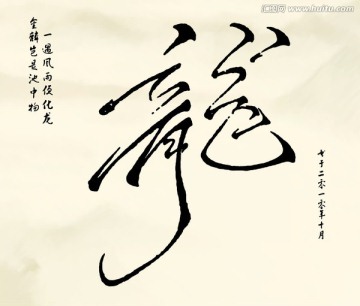 金鳞岂是池中物
一遇风雨便化龙
龍
书于二零一零年十月
www.huitu.com